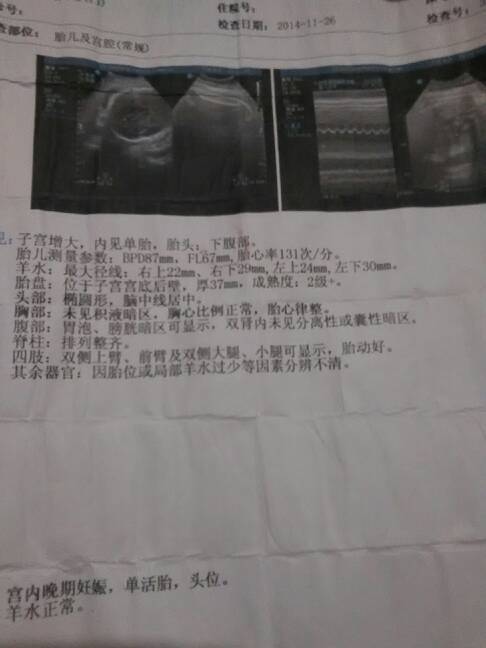 住院号：
检查日期：2014-11-26
检查号：
查部位：胎儿及宫腔(常规)
见：子宫增大，内见单胎，胎头：下腹部。
胎儿测量参数：BPD87mm，FL67mm，胎心率131次/分。
羊水：最大径线：右上22mm、右下29mm，左上24mm，左下30mm。
胎盘：位于子宫宫底后壁，厚37mm，成熟度：2级+。
头部：椭圆形，脑中线居中。
胸部：未见积液暗区，胸心比例正常，胎心律整。
腹部：胃泡、膀胱暗区可显示，双肾内未见分离性或囊性暗区。
脊柱：排列整齐。
四肢：双侧上臂、前臂及双侧大腿、小腿可显示，胎动好。
其余器官：因胎位或局部羊水过少等因素分辨不清。
宫内晚期妊娠，单活胎，头位。
羊水正常。